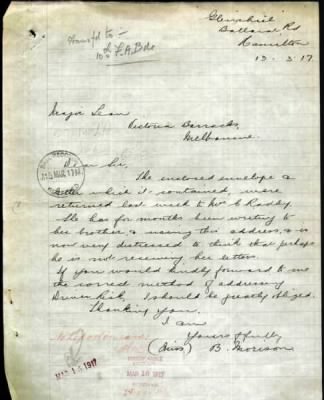 Transf'd to :-
10th F.A. Bde
Ballarat Rd
Hamilton
13.3.17.
Major Lean
Victoria Barracks,
Melbourne.
Dear Sir,
The enclosed envelope &
letter which it contained, were
returned last week to Mrs Radly.
She has for months been writing to
her brother, & using this address, & is
now very distressed to think that perhaps
he is not receiving her letters.
If you would kindly forward to me
the correct method of addressing
Driver, I should be greatly obliged.
Thanking you,
I am
Yours f'fully
(Miss) B. Morison
MAR 16 1917
MAR 16 1917